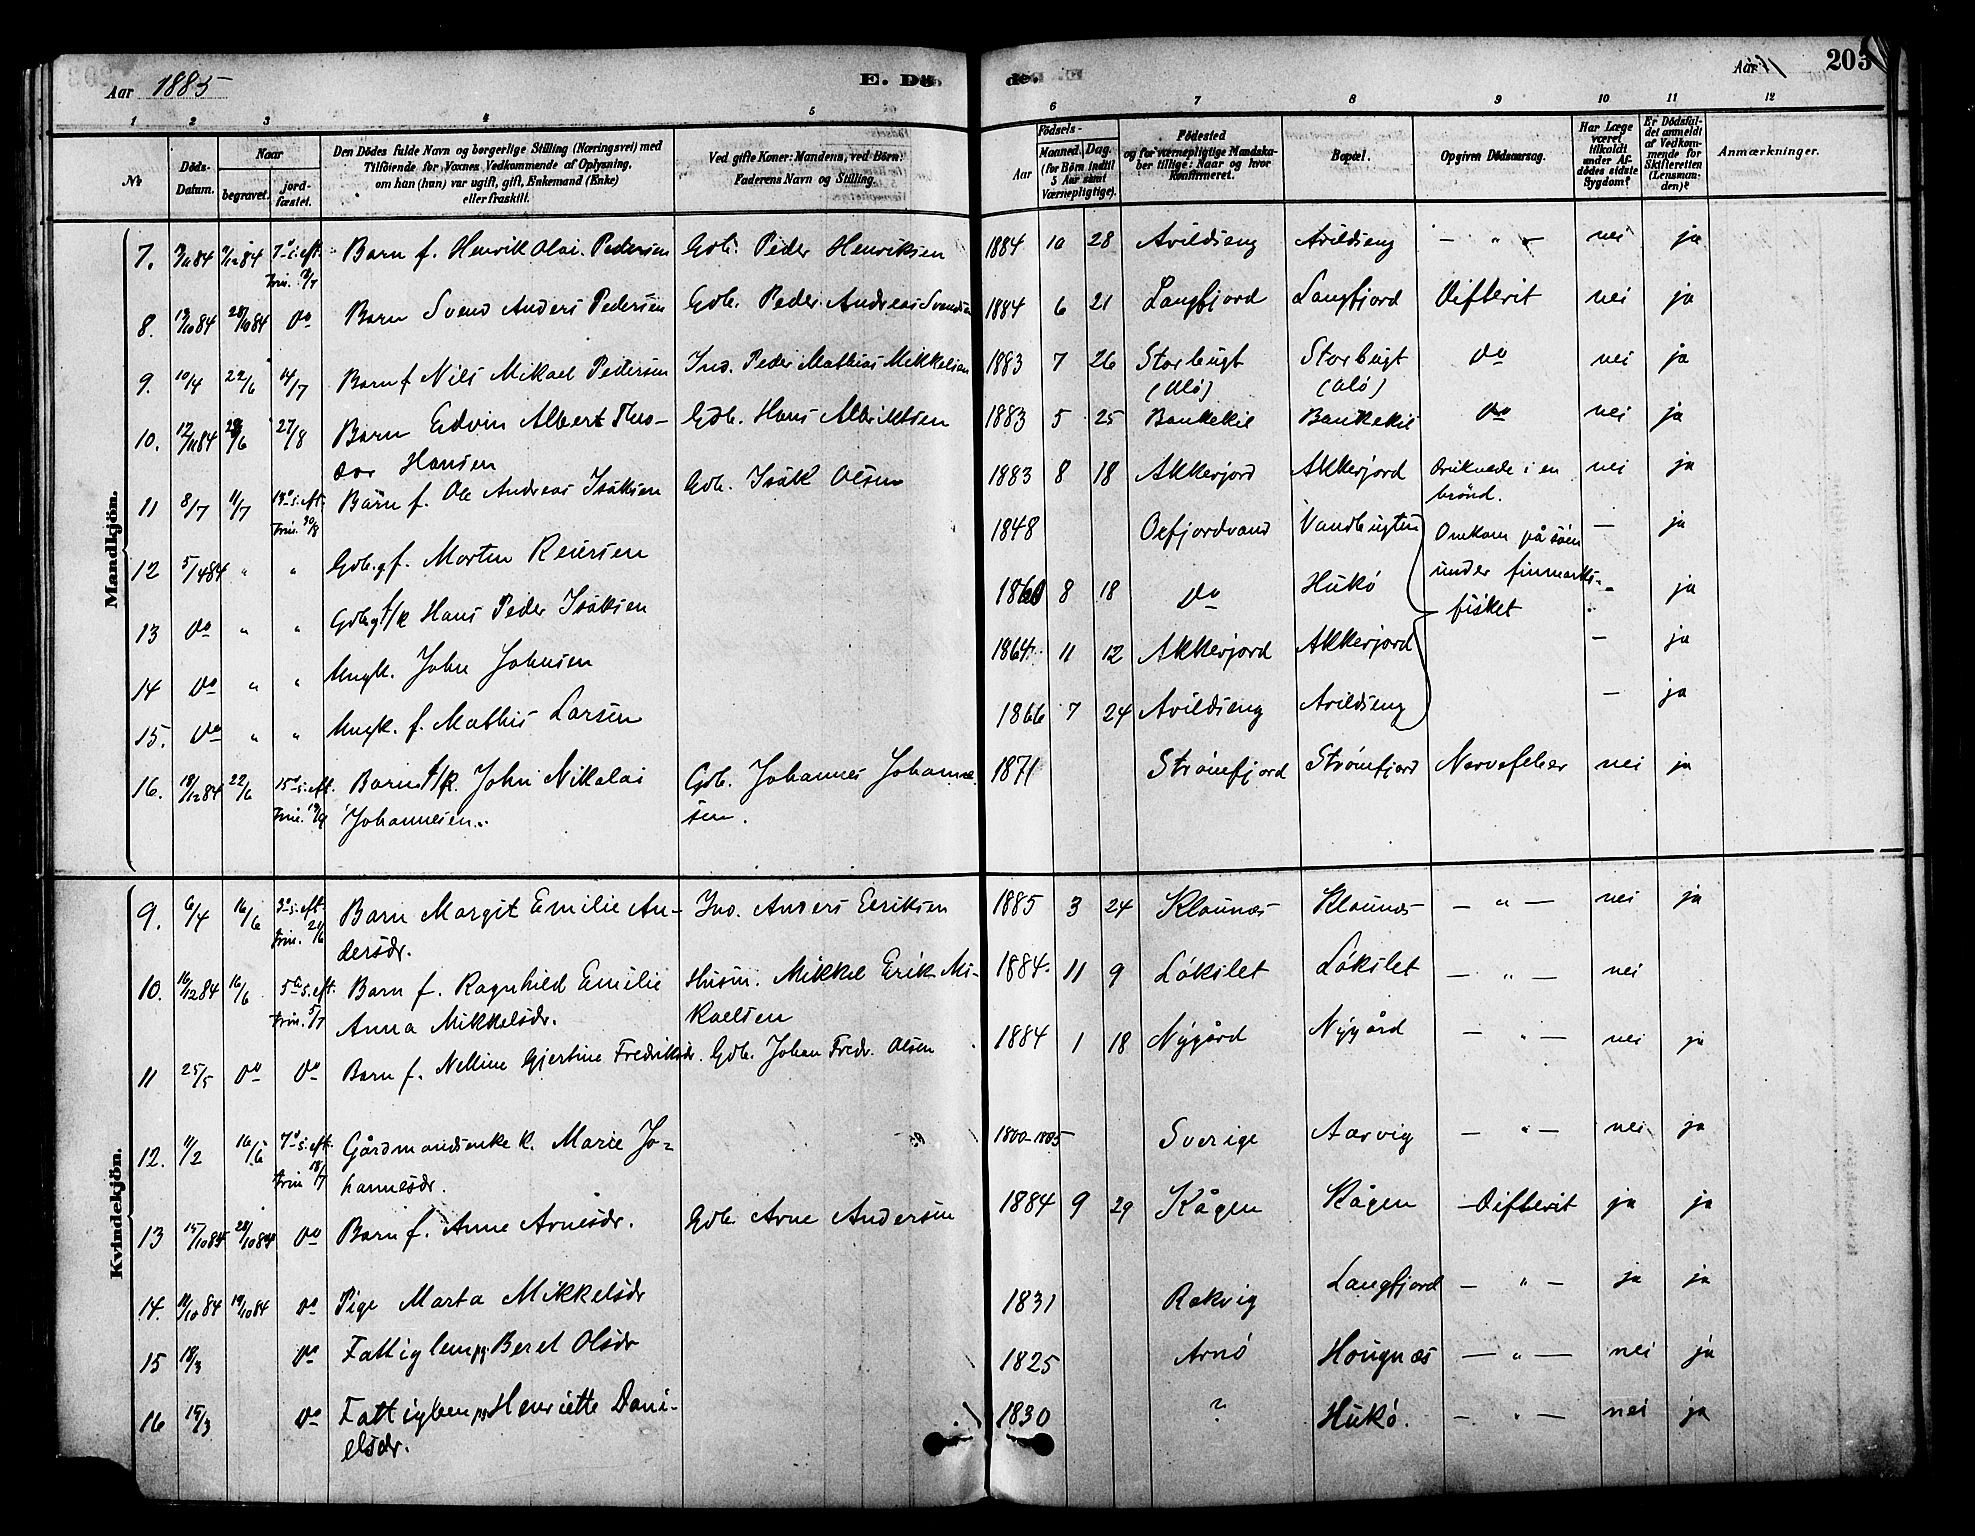 Aar 1885
E. Dö de.
Aar
203
1 2 3 4 5 6 7 8 9 10 11 12
№
Döds-Datum.
Naar
begravet.
jord-fæstet.
Den Dödes fulde Navn og borgerlige Stilling (Næringsvei) med
Tilföiende for Voxnes Vedkommende af Oplysning,
om han (hun) var ugift, gift, Enkemand (Enke)
eller fraskilt.
Ved gifte Koner: Mandens, ved Børn:
Faderens Navn og Stilling.
Födsels-
Aar
Maaned. Dag.
(for Börn indtil
5 Aar samt
Værnepligtige).
Födested
og for værnepligtige Mandska-
ber tillige: Naar og hvor
konfirmeret.
Bopæl.
Opgiven Dödsaarsag.
Har Læge
været
tilkaldt
under Af-
dödes sidste
Sygdom?
Er Dödsfal-
det anmeldt
af Vedkom-
mende for
Skifteretten
(Lensman-
den)?
Anmærkninger.
Mandkjön.
7. 7 s. eft. Trin. Barn f. Henrik Olai Pedersen Gdb. Peder Henriksen 1884 10 28 Avildseng Avildseng — " — nei ja
8. 13/10 84 28/10 84 do Barn Svend Anders Pedersen Gdb. Peder Andreas Svendsen 1884 6 21 Langfjord Langfjord Difterit nei ja
9. 10/4 22/6 14/7 Barn f Nils Mikael Pedersen Ind. Peder Mathias Mikkelsen 1883 7 26 Storbugt Storbugt do nei ja
(Ulö) (Ulö)
10. 12/11 84 27/8 Barn Edvin Albert Theo- Gdb. Hans Albriktsen 1883 5 25 Bankekil Bankekil do nei ja
dor Hansen
11 8/7 11/7 13 s. eft. Trin. 30/8 Barn f. Ole Andreas Isaksen Gdb. Isak Olsen 1883 8 18 Akkerjord Akkerjord Druknede i en nei ja
brönd.
12 5/4 84 " " Gdb. gf. Morten Reiersen 1848 Oxfjordvand Vandbugten Omkom på söen — ja
13 do " " Hans Peder Isaksen 8 18 do Hukö under finmarks- " ja
fisket
14 do " " Ungk. John Johnsen 1864 11 12 Akkerjord Akkerjord — ja
15. do " " Ungk. f. Mathis Larsen 1866 7 24 Avildseng Avildseng — ja
16. 18/12 84 22/6 15 s. eft. Trin. Barn f/k. John Nikolai Gdb. Johannes Johanne- 1871 Strömfjord Strömfjord Nervefeber nei ja
Johannesen. sen.
Kvindekjön.
9. 6/4 16/6 3 s. eft. Trin. 21/6 Barn Margit Emilie An- Ind. Anders Eriksen 1885 3 24 Klaunæs Klaunæs — " — nei ja
dersdr.
10. 16/12 84 16/6 5 s. eft. Trin. 5/7 Barn f. Ragnhild Emilie Husm. Mikkel Erik Mi- 1884 11 9 Lökslet Lökslet — " — nei
Anna Mikkelsdr. kaelsen
11 25/5 do do Barn f. Nelline Gjertine Fredriksdr. Gdb. Johan Fredr. Olsen 1884 1 18 Nygård Nygård — " — nei ja
12. 11/2 16/6 7 s. eft. Trin Gårdmandsenke k. Marie Jo- 1800-1805 Sverige Aarvig — " — nei ja
hannesdr.
13 15/10 84 28/10 84 do Barn f. Anne Arnesdr. Gdb. Arne Andersen 1884 9 29 Kågen Kågen — Difterit ja ja
14. 19/10 84 do Pige Marta Mikkelsdr 1831 Rakvig Langfjord — " — ja ja
15 18/3 do Fattiglem Beret Olsdr 1825 Arnö Hougnæs — " — nei ja
16 15/3 do Fattiglem Henriette Dani- 1830 ? Hukö. — " — nei ja
elsdr.